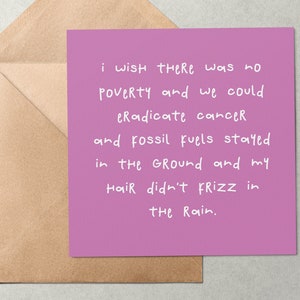 i wish there was no
poverty and we could
eradicate cancer
and fossil fuels stayed
in the ground and my
hair didn't frizz in
the rain.